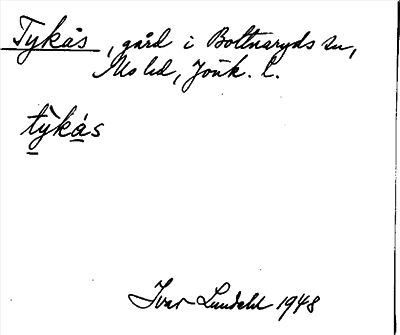 Tykås, gård i Boltnaryds sn,
Mo hd, Jönk. l.
tỳkás
Ivar Lundahl 1948